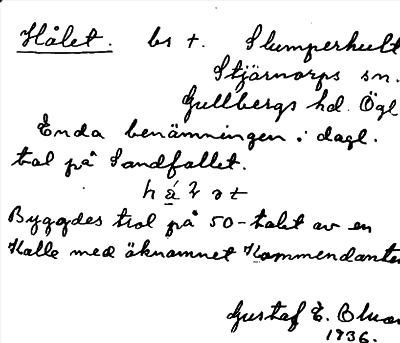 Hålet. bs t. Slumperhult
Stjärnorps sn.
Gullbergs hd. Ögl
Enda benämningen i dagl.
tal på Sandfallet.
Byggdes trol på 50-talet av en
Kalle med öknamnet Kommendanten
Gustaf E.
1936.